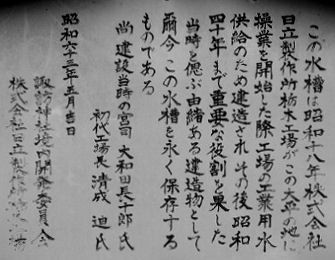 この水槽は昭和十八年株式会社
日立製作所栃木工場がこの大平の地に
操業を開始した際工場の工業用水
供給のため建造されその後昭和
四十年まで重要な役割を果した
当時を偲ぶ由緒ある建造物として
爾今この水槽を永く保存する
ものである
尚建設当時の宮司 大和田長十郎氏
初代工場長 清成 迪氏
昭和六十三年五月吉日
諏訪神社境内開発委員会
株式会社日立製作所栃木工場